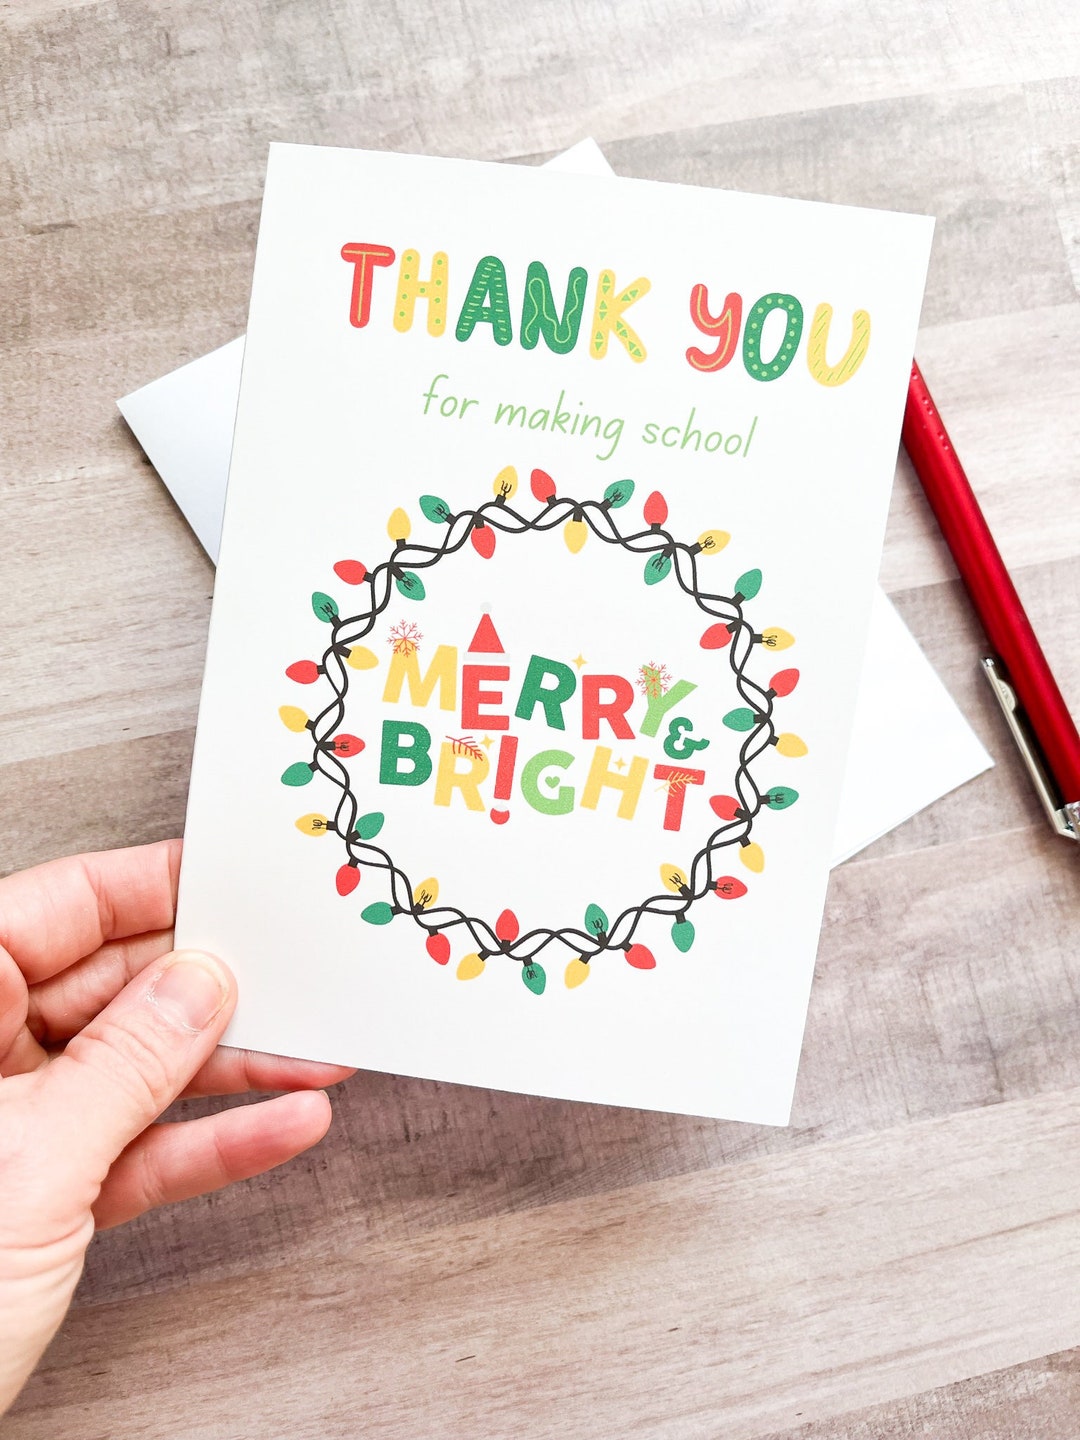 THANK YOU
for making school
MERRY &
BRIGHT